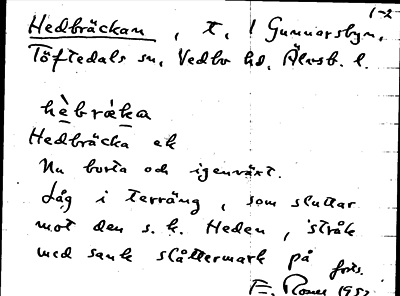 1-2
Hedbräckan, t, 1 Gunnarsbyn,
Töftedals sn, Vedbo hd, Älvsb. l.
hèbráka
Hedbräcka ek
Nu borta och igenväxt.
Låg i terräng, som sluttar
mot den s.k. Heden, stråk
med sank slåttermark på
forts.
F. Roner 195